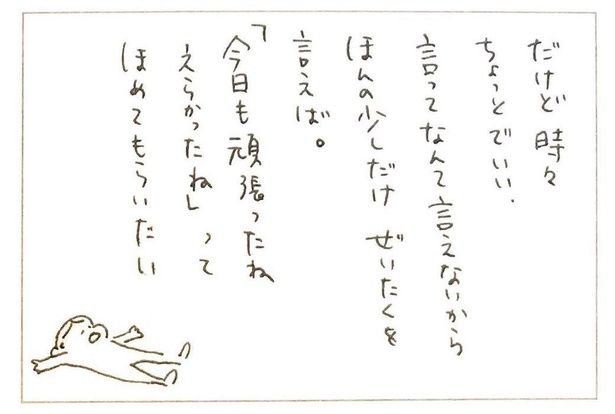 だけど 時々
ちょっとでいい.
言ってなんて言えないから
ほんの少しだけ ぜいたくを
言えば。
「今日も頑張ったね
えらかったね」って
ほめてもらいたい